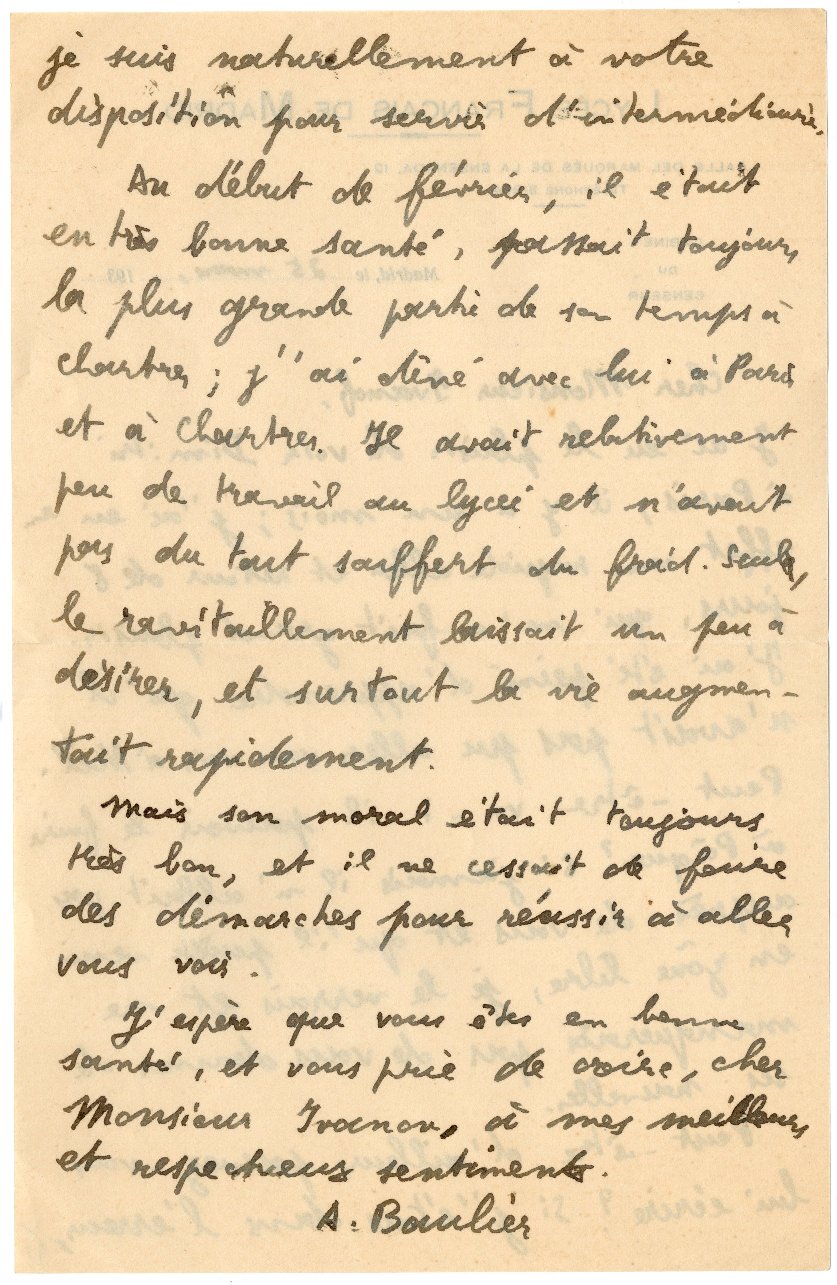 je suis naturellement à votre
disposition pour servir d'intermédiaire.
Au début de février, il était
en très bonne santé, passait toujours
la plus grande partie de son temps à
Chartres ; j'ai dîné avec lui à Paris
et à Chartres. Il avait relativement
peu de travail au lycée et n'avait
pas du tout souffert du froid. Seul,
le ravitaillement laissait un peu à
désirer, et surtout la vie augmen-
tait rapidement.
Mais son moral était toujours
très bon, et il ne cessait de faire
des démarches pour réussir à aller
vous voir.
J'espère que vous êtes en bonne
santé, et vous prie de croire, cher
Monsieur Ivanov, à mes meilleurs
et respectueux sentiments.
A. Baulier